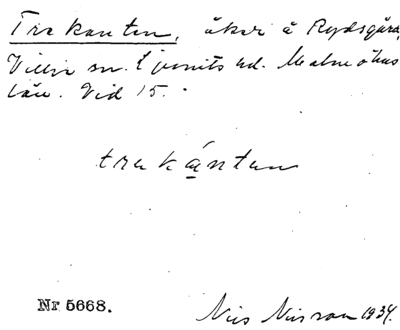 Trekanten, åker å Rydsgård,
Villie sn. Ljunits hd. Malmöhus
län. Vid 15.
trekántən
Nr 5668.
Nils Nilsson 1934.